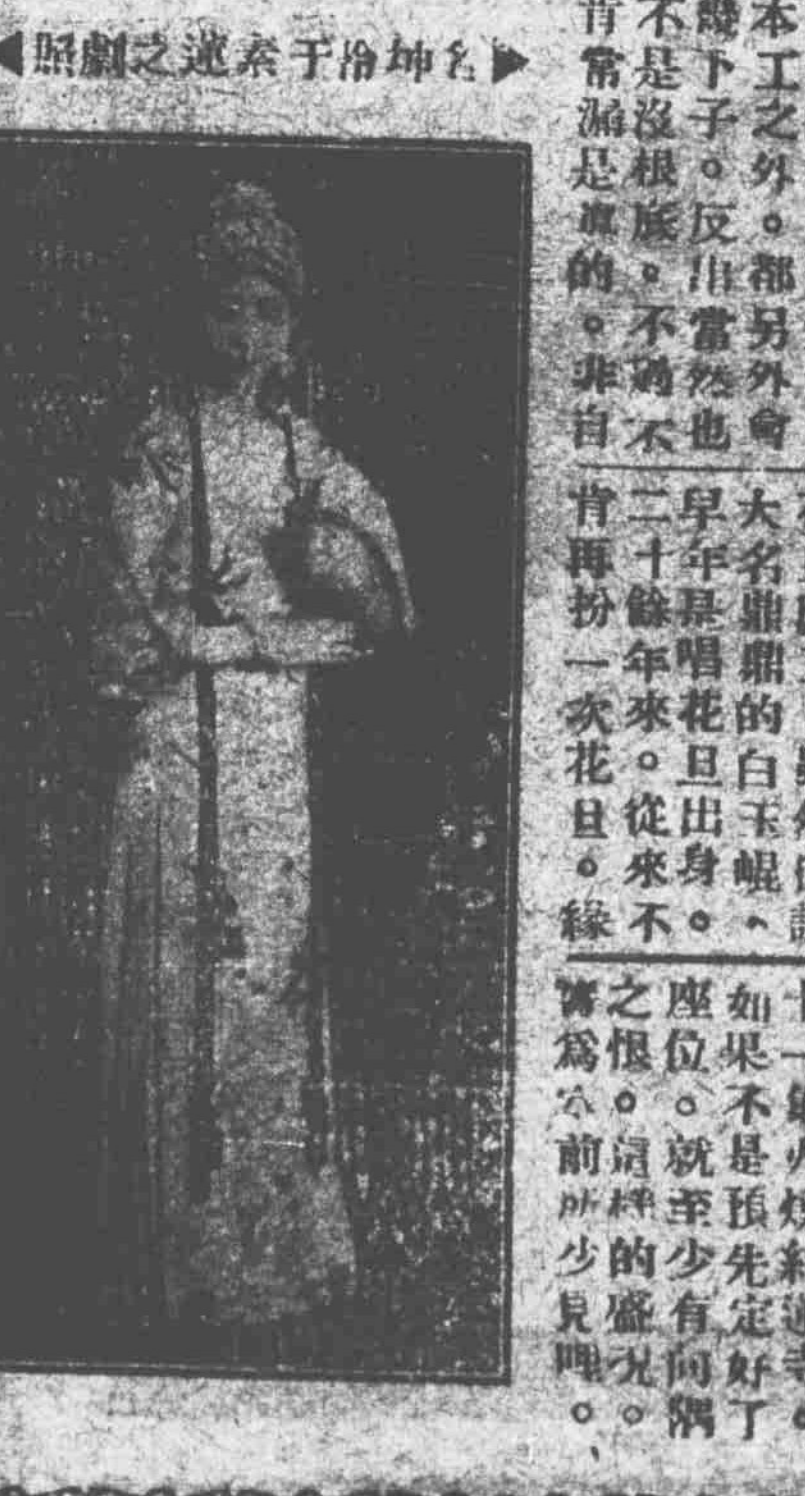 名坤伶于素蓮之劇照
本工之外。都另外會
幾下子。反串當然也
不是沒根底。不過不
肯常漏是眞的。非自
大名鼎鼎的白玉崐、
早年是唱花旦出身。
二十餘年來。從來不
肯再扮一次花旦。緣
如果不是預先定好了
座位。就至少有向隅
之恨。這樣的盛况。
爲
前所少見哩。